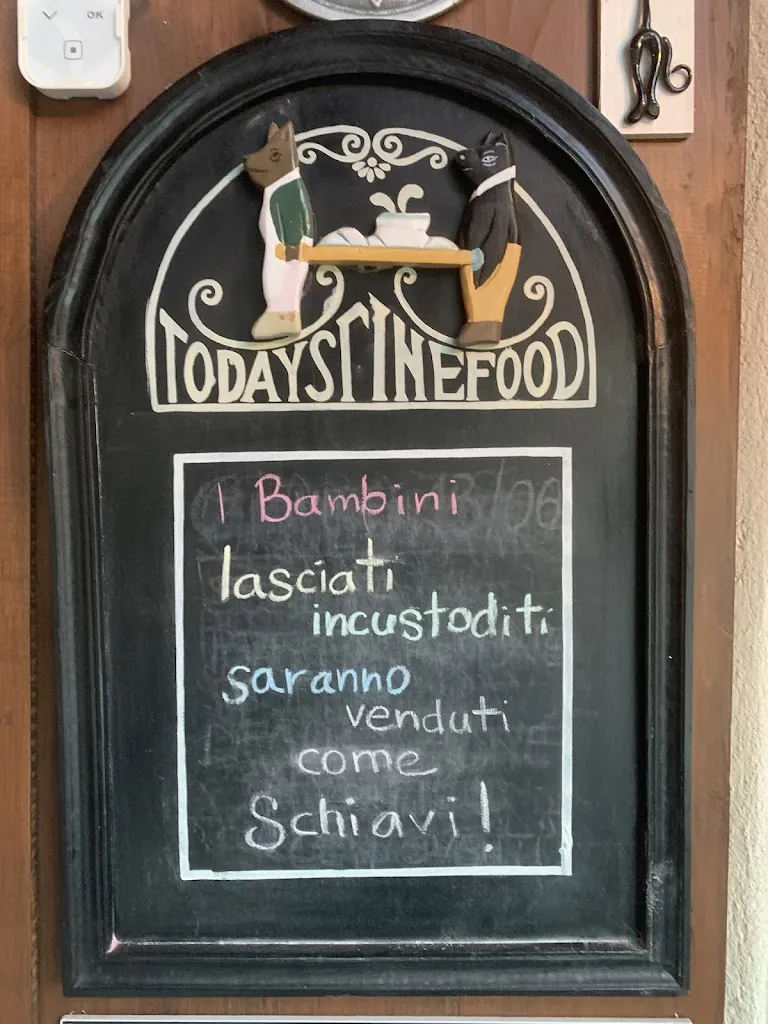 OK
TODAYS FINE FOOD
I Bambini
lasciati
incustoditi
saranno
venduti
come
Schiavi!